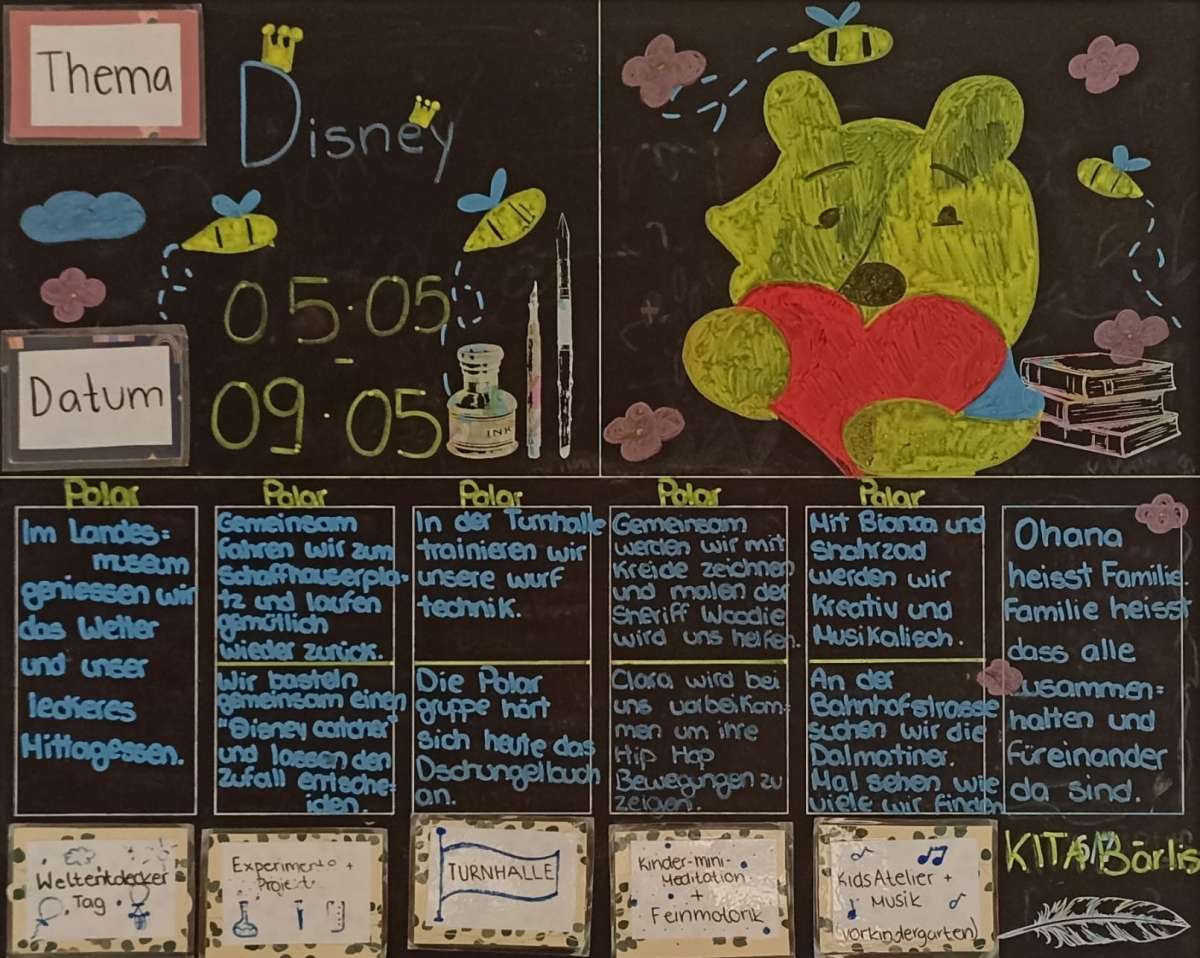 Thema
Disney
05.05
-
09.05
Datum
INK
Polar
Im Landes=
museum
geniessen wir
das Wetter
und unser
leckeres
Mittagessen.
Polar
Gemeinsam
fahren wir zum
Schaffhauserpla-
tz und laufen
gemütlich
wieder zurück.
Wir basteln
gemeinsam einen
"Disney catcher"
und lassen den
zufall entsche-
iden.
Polar
In der Turnhalle
trainieren wir
unsere wurf
technik.
Die Polar
gruppe hört
sich heute das
Dschungelbuch
an.
Polar
Gemeinsam
werden wir mit
Kreide zeichnen
und malen der
Sheriff Woodie
wird uns helfen.
Clara wird bei
uns vorbeikom-
men um ihre
Hip Hop
Bewegungen zu
zeigen.
Polar
Mit Bianca und
Shahrzad
werden wir
Kreativ und
Musikalisch.
An der
Bahnhofstrasse
suchen wir die
Dalmatiner.
Mal sehen wie
viele wir finden
Ohana
heisst Familie.
Familie heisst
dass alle
zusammen=
halten und
füreinander
da sind.
Weltentdecker
Tag
Experimente +
Projekt
TURNHALLE
Kinder-mini-
Meditation
+
Feinmotorik
Kids Atelier +
Musik
(vorkindergarten)
KITA Bärlis